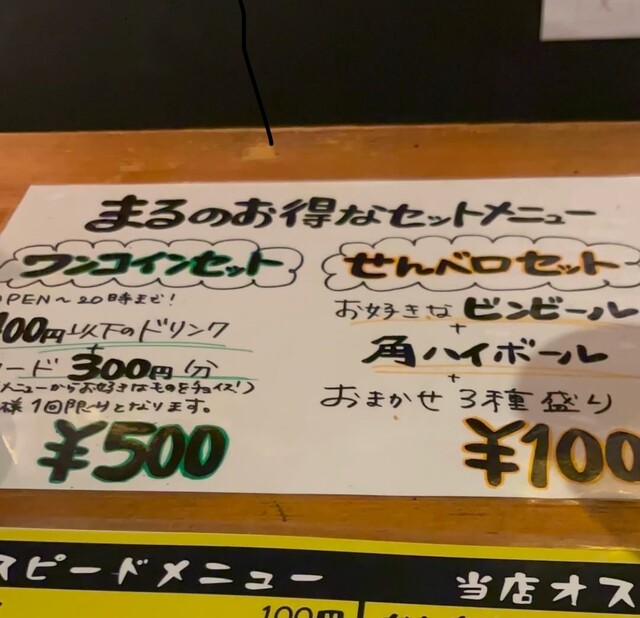 まるのお得なセットメニュー
ワンコインセット
PEN〜20時まで!
00円以下のドリンク
+
ード 300円分
メニューからお好きなものをチョイス!)
様1回限りとなります。
¥500
せんベロセット
お好きなビンビール
+
角ハイボール
+
おまかせ3種盛り
¥100
スピードメニュー
100円
当店オス